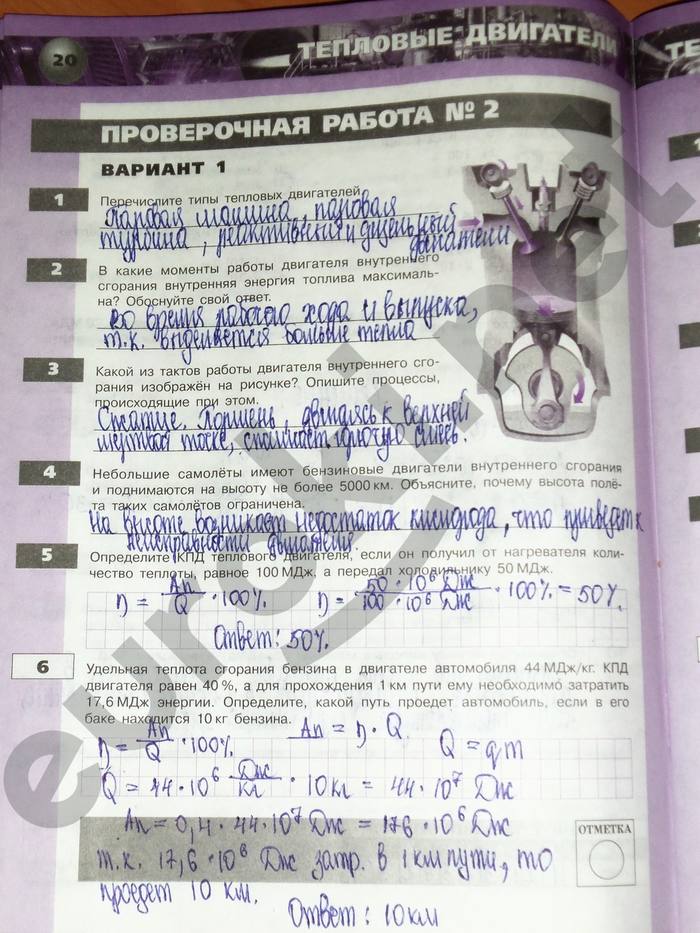 20
ТЕПЛОВЫЕ ДВИГАТЕЛИ
ПРОВЕРОЧНАЯ РАБОТА № 2
ВАРИАНТ 1
1
Перечислите типы тепловых двигателей.
Паровая машина, паровая
турбина, реактивный и дизельный
двигатели
2
В какие моменты работы двигателя внутреннего
сгорания внутренняя энергия топлива максималь-
на? Обоснуйте свой ответ.
Во время рабочего хода и выпуска,
т.к. выделяется больше тепла
3
Какой из тактов работы двигателя внутреннего сго-
рания изображён на рисунке? Опишите процессы,
происходящие при этом.
Сжатие. Поршень, двигаясь к верхней
мертвой точке, сжимает горючую смесь.
4
Небольшие самолёты имеют бензиновые двигатели внутреннего сгорания
и поднимаются на высоту не более 5000 км. Объясните, почему высота полё-
та таких самолётов ограничена.
На высоте возникает недостаток кислорода, что приведет к
неисправности двигателя.
5
Определите КПД теплового двигателя, если он получил от нагревателя коли-
чество теплоты, равное 100 МДж, а передал холодильнику 50 МДж.
η = Ап/Q · 100%. η = 50 · 10⁶ Дж / 100 · 10⁶ Дж · 100% = 50%.
Ответ: 50%.
6
Удельная теплота сгорания бензина в двигателе автомобиля 44 МДж/кг. КПД
двигателя равен 40 %, а для прохождения 1 км пути ему необходимо затратить
17,6 МДж энергии. Определите, какой путь проедет автомобиль, если в его
баке находится 10 кг бензина.
η = Ап/Q · 100%. Ап = η · Q. Q = qm
Q = 44 · 10⁶ Дж/кг · 10 кг = 44 · 10⁷ Дж
Ап = 0,4 · 44 · 10⁷ Дж = 176 · 10⁶ Дж
т.к. 17,6 · 10⁶ Дж затр. в 1 км пути, то
проедет 10 км.
Ответ: 10 км
ОТМЕТКА
euroki.net